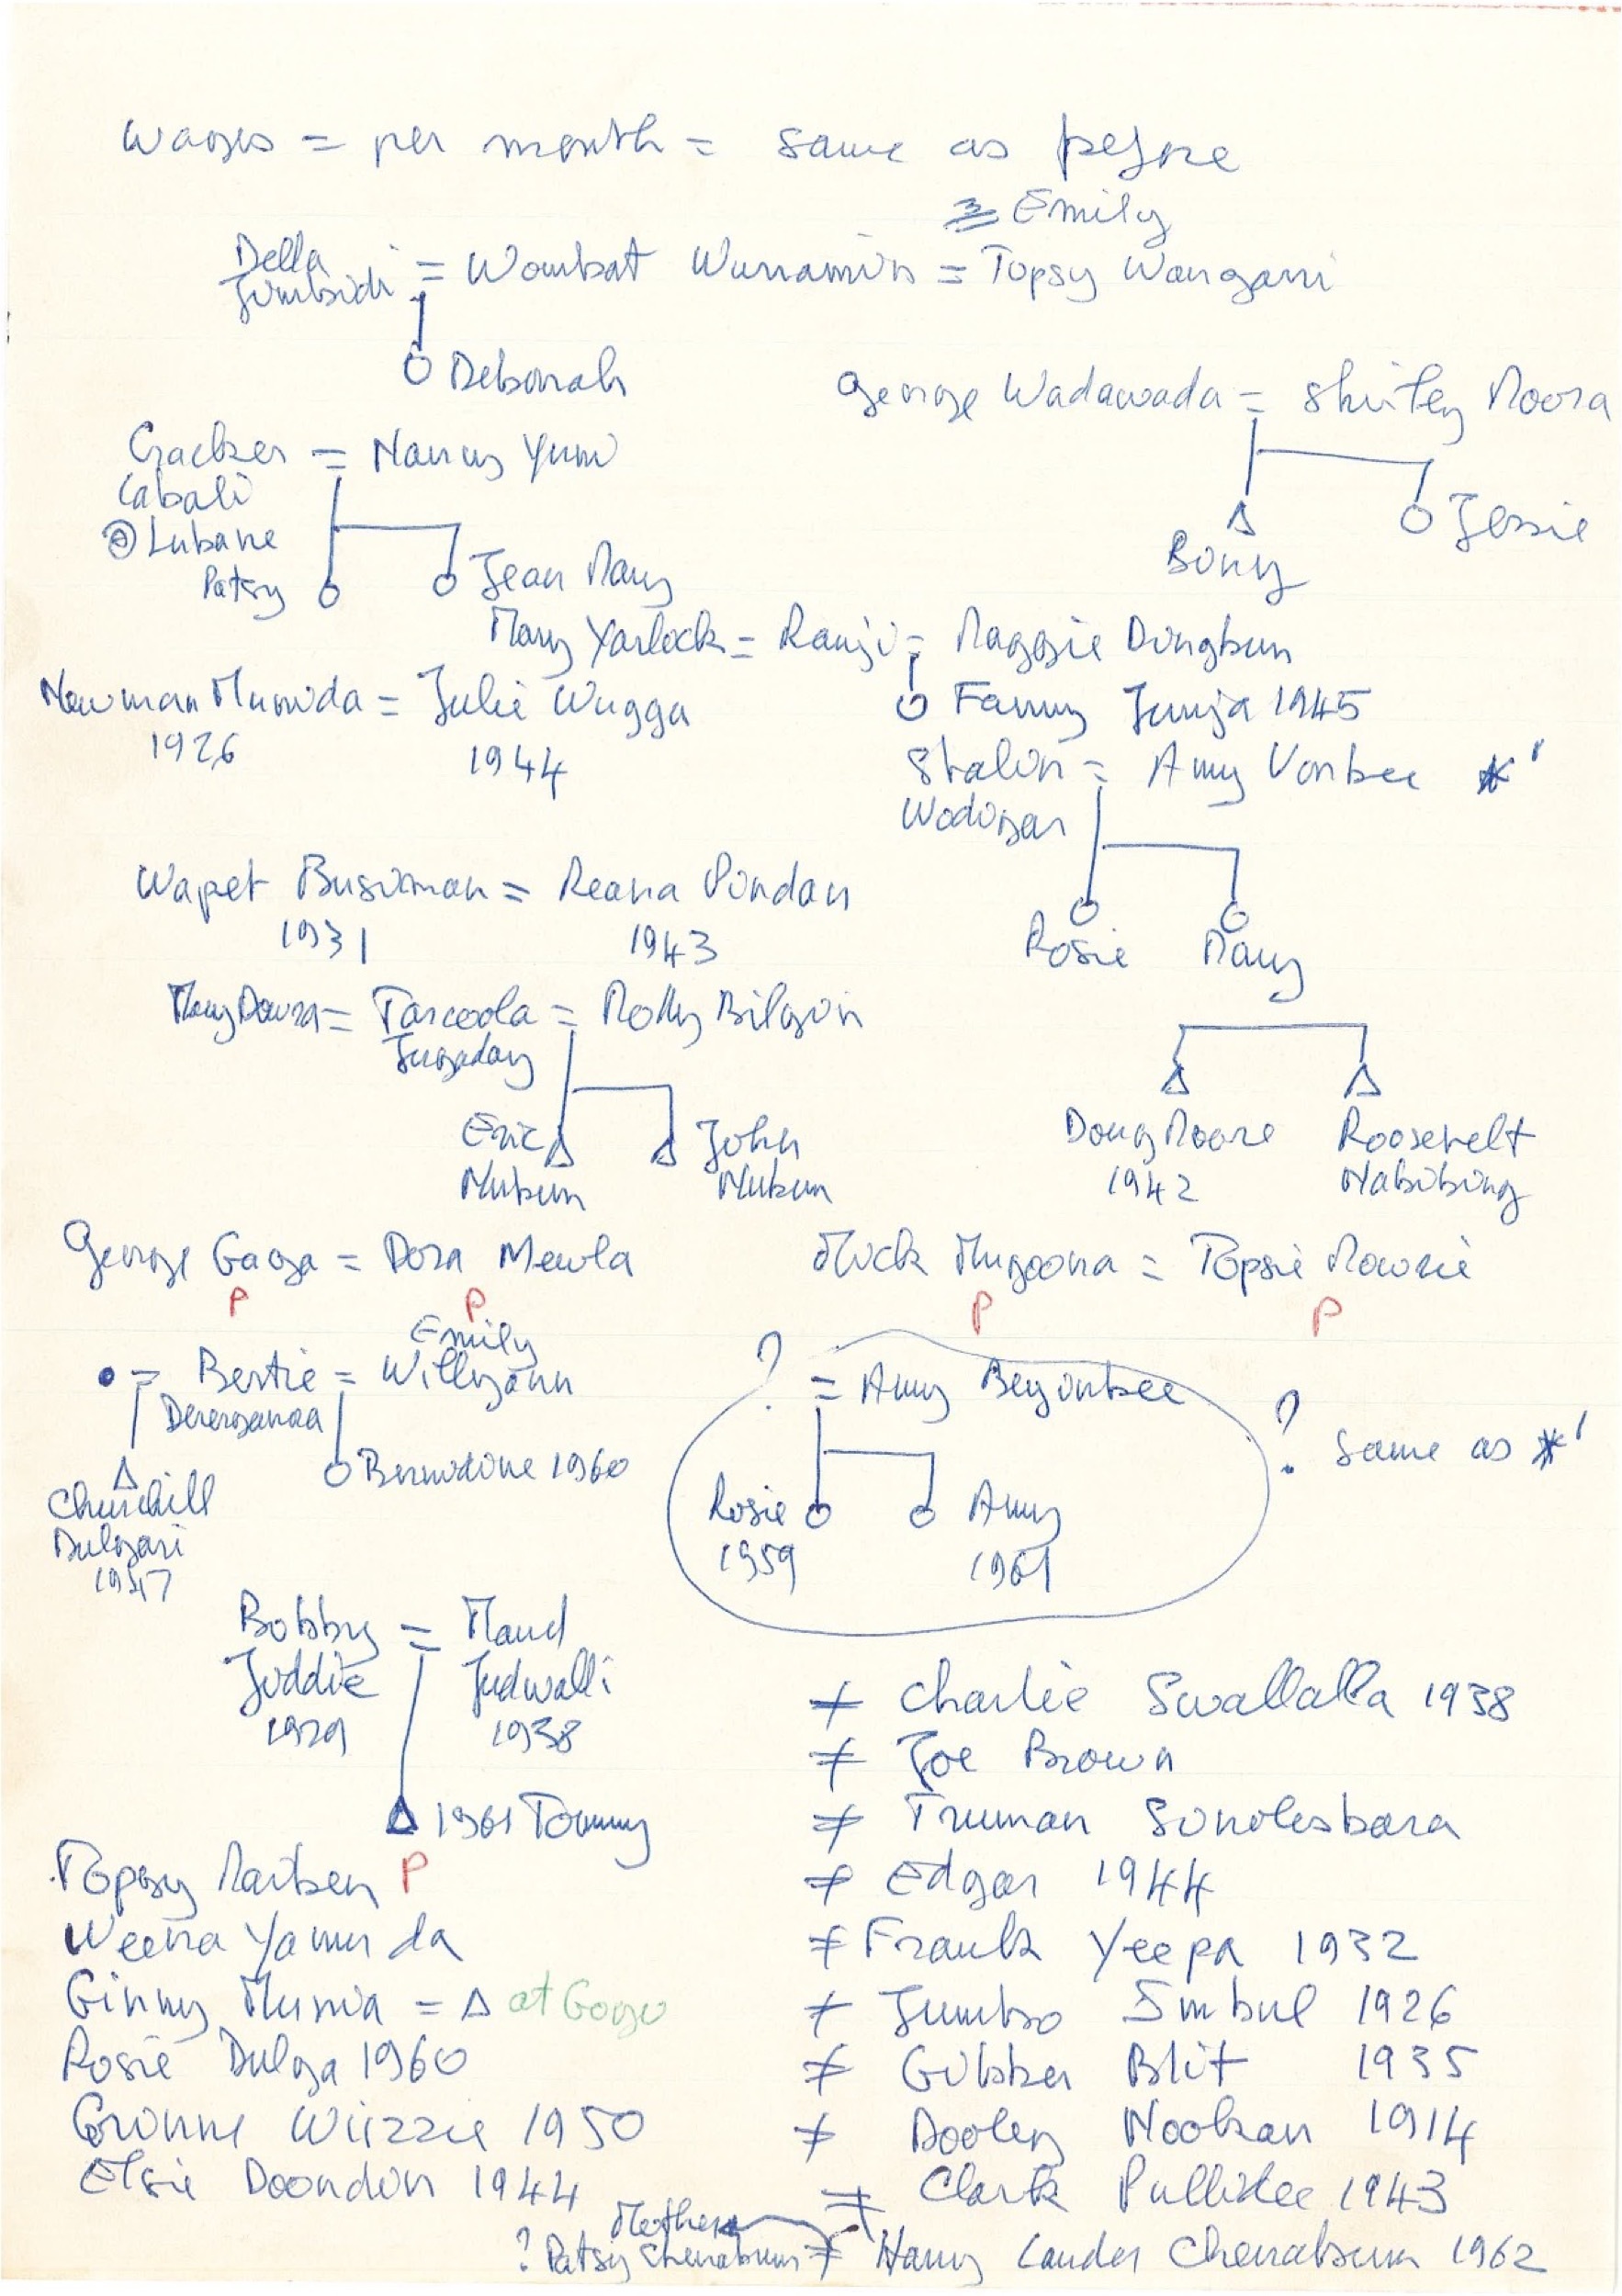 Wages = per month = same as before
Emily
Della Jumbidi = Wombat Wunamin = Topsy Wangani
Deborah
George Wadawada = Shirley Moora
Bony
Jessie
Cracker = Nancy Yuwi
Cabali
Lubane
Patsy
Jean Mary
Mary Yarlock = Ranji = Maggie Dingbun
Fanny Junja 1945
Newman Mumida = Julie Wugga
1926 1944
Stalin = Amy Vonbee *'
Wodigan
Rosie Mary
Wapet Busiman = Reana Pindan
1931 1943
Mary Doura = Tarcoola = Molly Bilgin
Jugaday
Eric Nubun
John Nubun
Doug Moore 1942
Roosevelt Nabibing
George Gaga = Dora Mewla
P P
Mick Mugoona = Topsie Mowrie
P P
Emily
• = Bertie = Willyann
Dererganaa
Bernadine 1960
Churchill
Dulgari
1947
? = Amy Beyonbee
Rosie 1959
Amy 1961
? Same as *'
Bobby Juddie 1929 = Maud Judwalli 1938
1961 Tommy
Topsy Marben P
Weena Yamunda
Ginny Munia = Δ at Gogo
Rosie Dulga 1960
Wizzie 1950
Elsie Doondon 1944
≠ Charlie Swallalla 1938
≠ Joe Brown
≠ Truman Sonolesbara
≠ Edgar 1944
≠ Frank Yeepa 1932
≠ Jumbo Imbul 1926
≠ Gibber Blit 1935
≠ Dooley Nookan 1914
≠ Clark Pullilee 1943
Mother
? Patsy Chenabun ≠ Harry Lauder Chenabun 1962